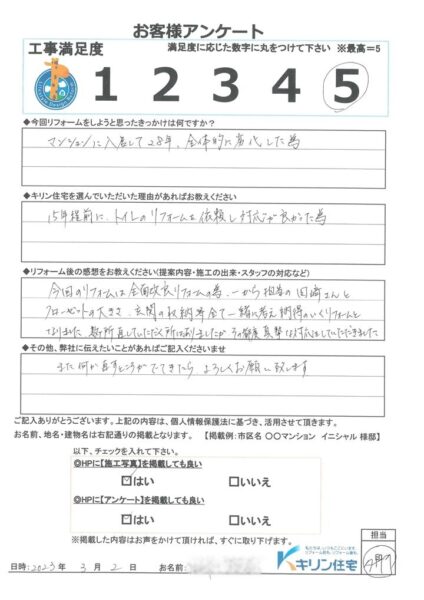 お客様アンケート
工事満足度
満足度に応じた数字に丸をつけて下さい ※最高=5
1 2 3 4 5
◆今回リフォームをしようと思ったきっかけは何ですか?
マンションに入居して28年、全体的に劣化した為
◆キリン住宅を選んでいただいた理由があればお教えください
15年程前に、トイレのリフォームを依頼し対応が良かった為
◆リフォーム後の感想をお教えください(提案内容・施工の出来・スタッフの対応など)
今回のリフォームは全面改良リフォームの為、一から担当の田崎さんと
クローゼットの大きさ、玄関の収納等全て一緒に考え納得のいくリフォームと
なりました 数ヶ所直していただく所はありましたが その都度真摯に対応していただきました
◆その他、弊社に伝えたいことがあればご記入くださいませ
また何か直すところがでてきたら よろしくお願い致します
ご記入ありがとうございます。上記の内容は、個人情報保護法に基づき、活用させて頂きます。
お名前、地名・建物名は右記通りの掲載となります。 【掲載例:市区名 〇〇マンション イニシャル 様邸】
以下、チェックを入れて下さい。
◎HPに【施工写真】を掲載しても良い
☑はい □いいえ
◎HPに【アンケート】を掲載しても良い
☑はい □いいえ
※掲載した内容はお声をかけて頂ければ、すぐに取り下げます。
担当
キリン住宅
日時:2023年 3月 2日 お名前: